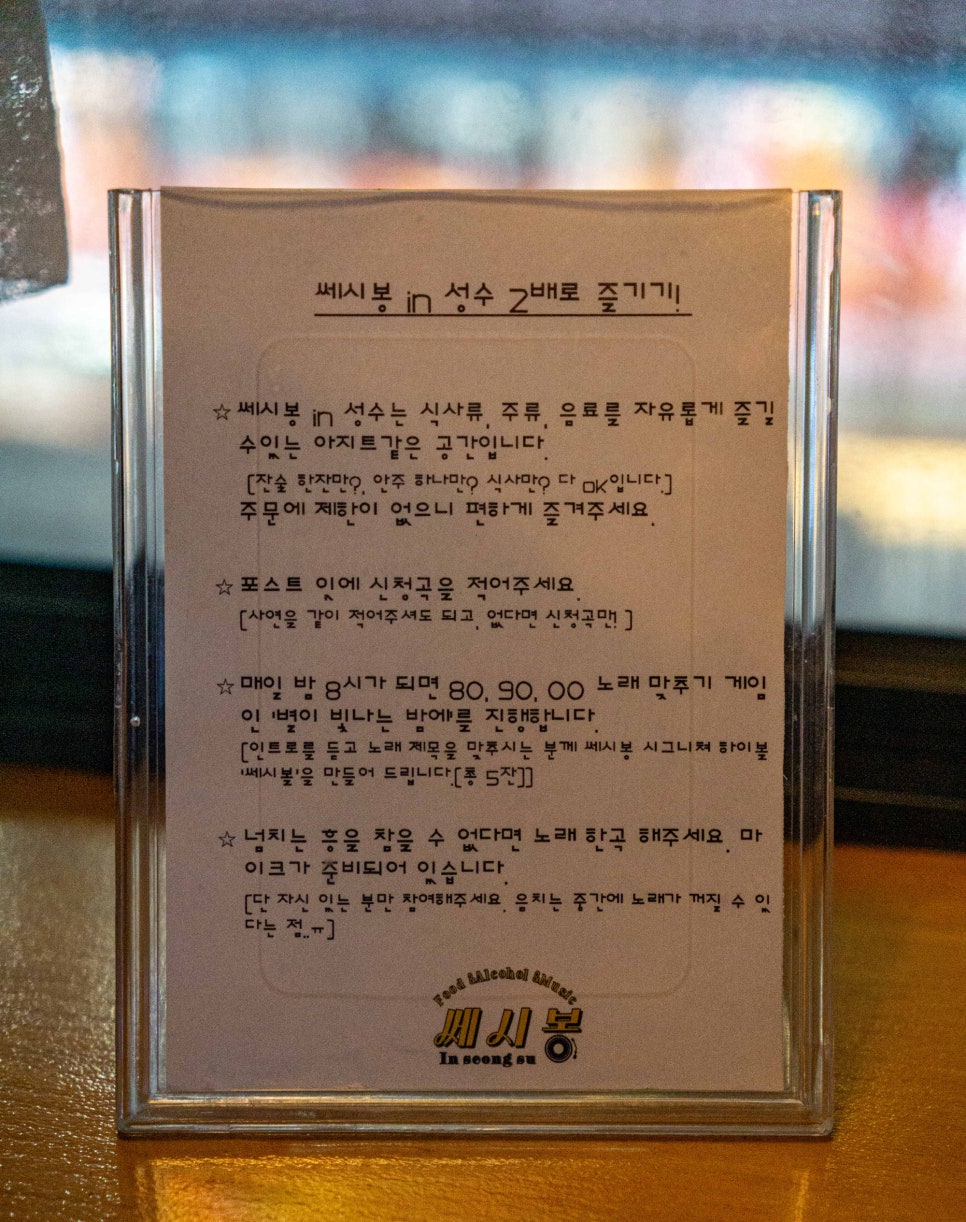 쎄시봉 in 성수 2배로 즐기기!
☆ 쎄시봉 in 성수는 식사류, 주류, 음료를 자유롭게 즐길
수있는 아지트같은 공간입니다.
[잔술 한잔만?, 안주 하나만? 식사만? 다 OK입니다.]
주문에 제한이 없으니 편하게 즐겨주세요.
☆ 포스트 잇에 신청곡을 적어주세요.
[사연을 같이 적어주셔도 되고, 없다면 신청곡만! ]
☆ 매일 밤 8시가 되면 80, 90, 00 노래 맞추기 게임
인 '별이 빛나는 밤에'를 진행합니다.
[인트로를 듣고 노래 제목을 맞추시는 분께 쎄시봉 시그니쳐 하이볼
'쎄시볼'을 만들어 드립니다.[총 5잔]]
☆ 넘치는 흥을 참을 수 없다면 노래 한곡 해주세요. 마
이크가 준비되어 있습니다.
[단 자신 있는 분만 참여해주세요. 음치는 중간에 노래가 꺼질 수 있
다는 점..ㅠ]
Food &Alcohol &Music
쎄시봉
In seong su